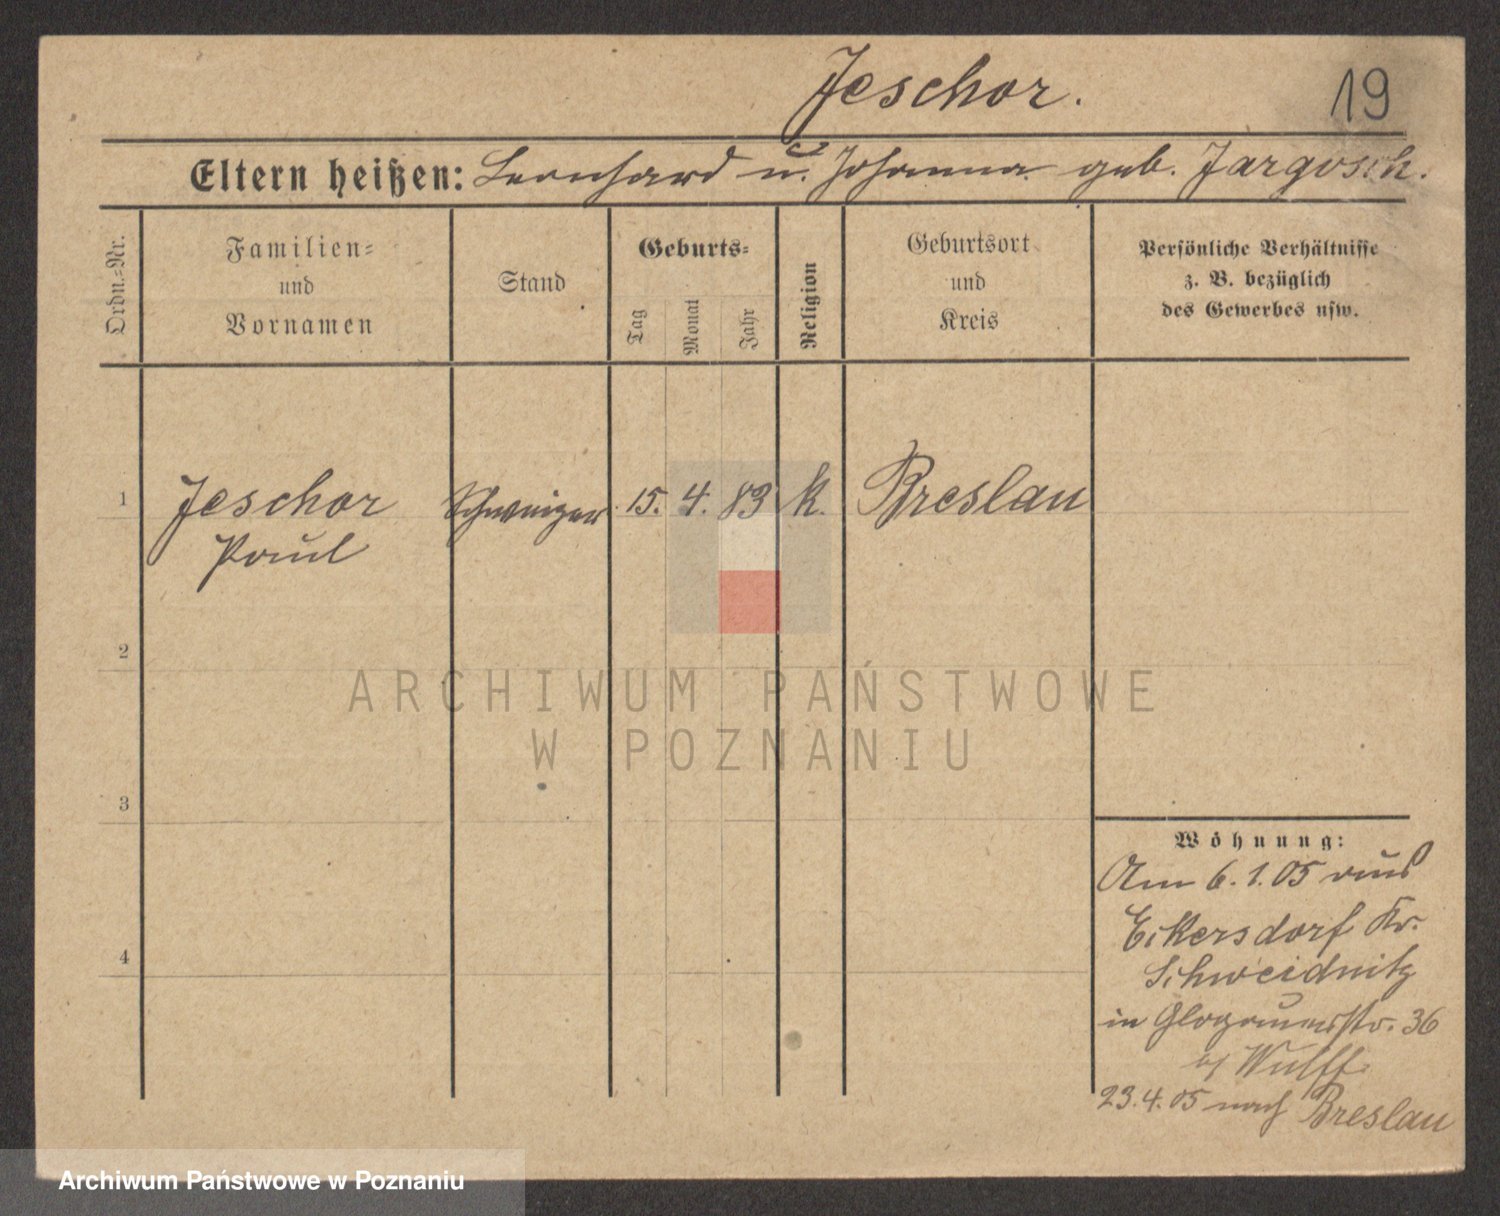 Jeschor.
19
Eltern heißen: Leonhard u. Johanna geb. Jargosch.
Ordn.=Nr.
Familien=
und
Vornamen
Stand
Geburts=
Tag
Monat
Jahr
Religion
Geburtsort
und
Kreis
Persönliche Verhältnisse
z. B. bezüglich
des Gewerbes usw.
1
Jeschor
Paul
Schweizer
15.
4.
83
k.
Breslau
2
ARCHIWUM PAŃSTWOWE
W POZNANIU
3
4
Wohnung:
Am 6.1.05 aus
Eckersdorf Kr.
Schweidnitz
in Glogauerstr. 36
b/ Wulff.
23.4.05 nach Breslau
Archiwum Państwowe w Poznaniu